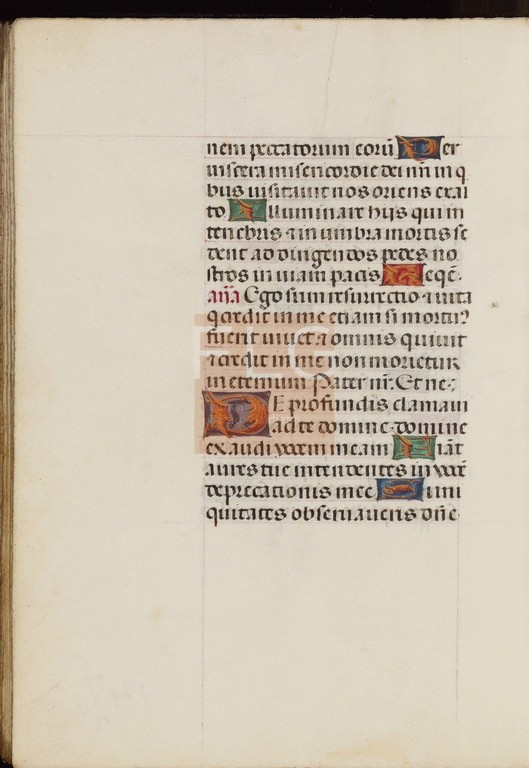 nem peccatorum eorū Per
viscera misericordie dei nr̄i in q
bus visitauit nos oriens ex al
to Illuminare hijs qui in
tenebris ⁊ in umbra mortis se
dent ad dirigendos pedes no
stros in viam pacis Reqē
añā Ego sum resurrectio ⁊ vita
q credit in me etiam si mortuꝰ
fuerit viuet ⁊ omnis qui viuit
⁊ credit in me non morietur
in eternum Pater nr̄. Et ne
De profundis clamaui
ad te domine domine
exaudi vocem meam Fiāt
aures tue intendentes in vocē
deprecationis mee Si ini
quitates obseruaueris dn̄e
FLG